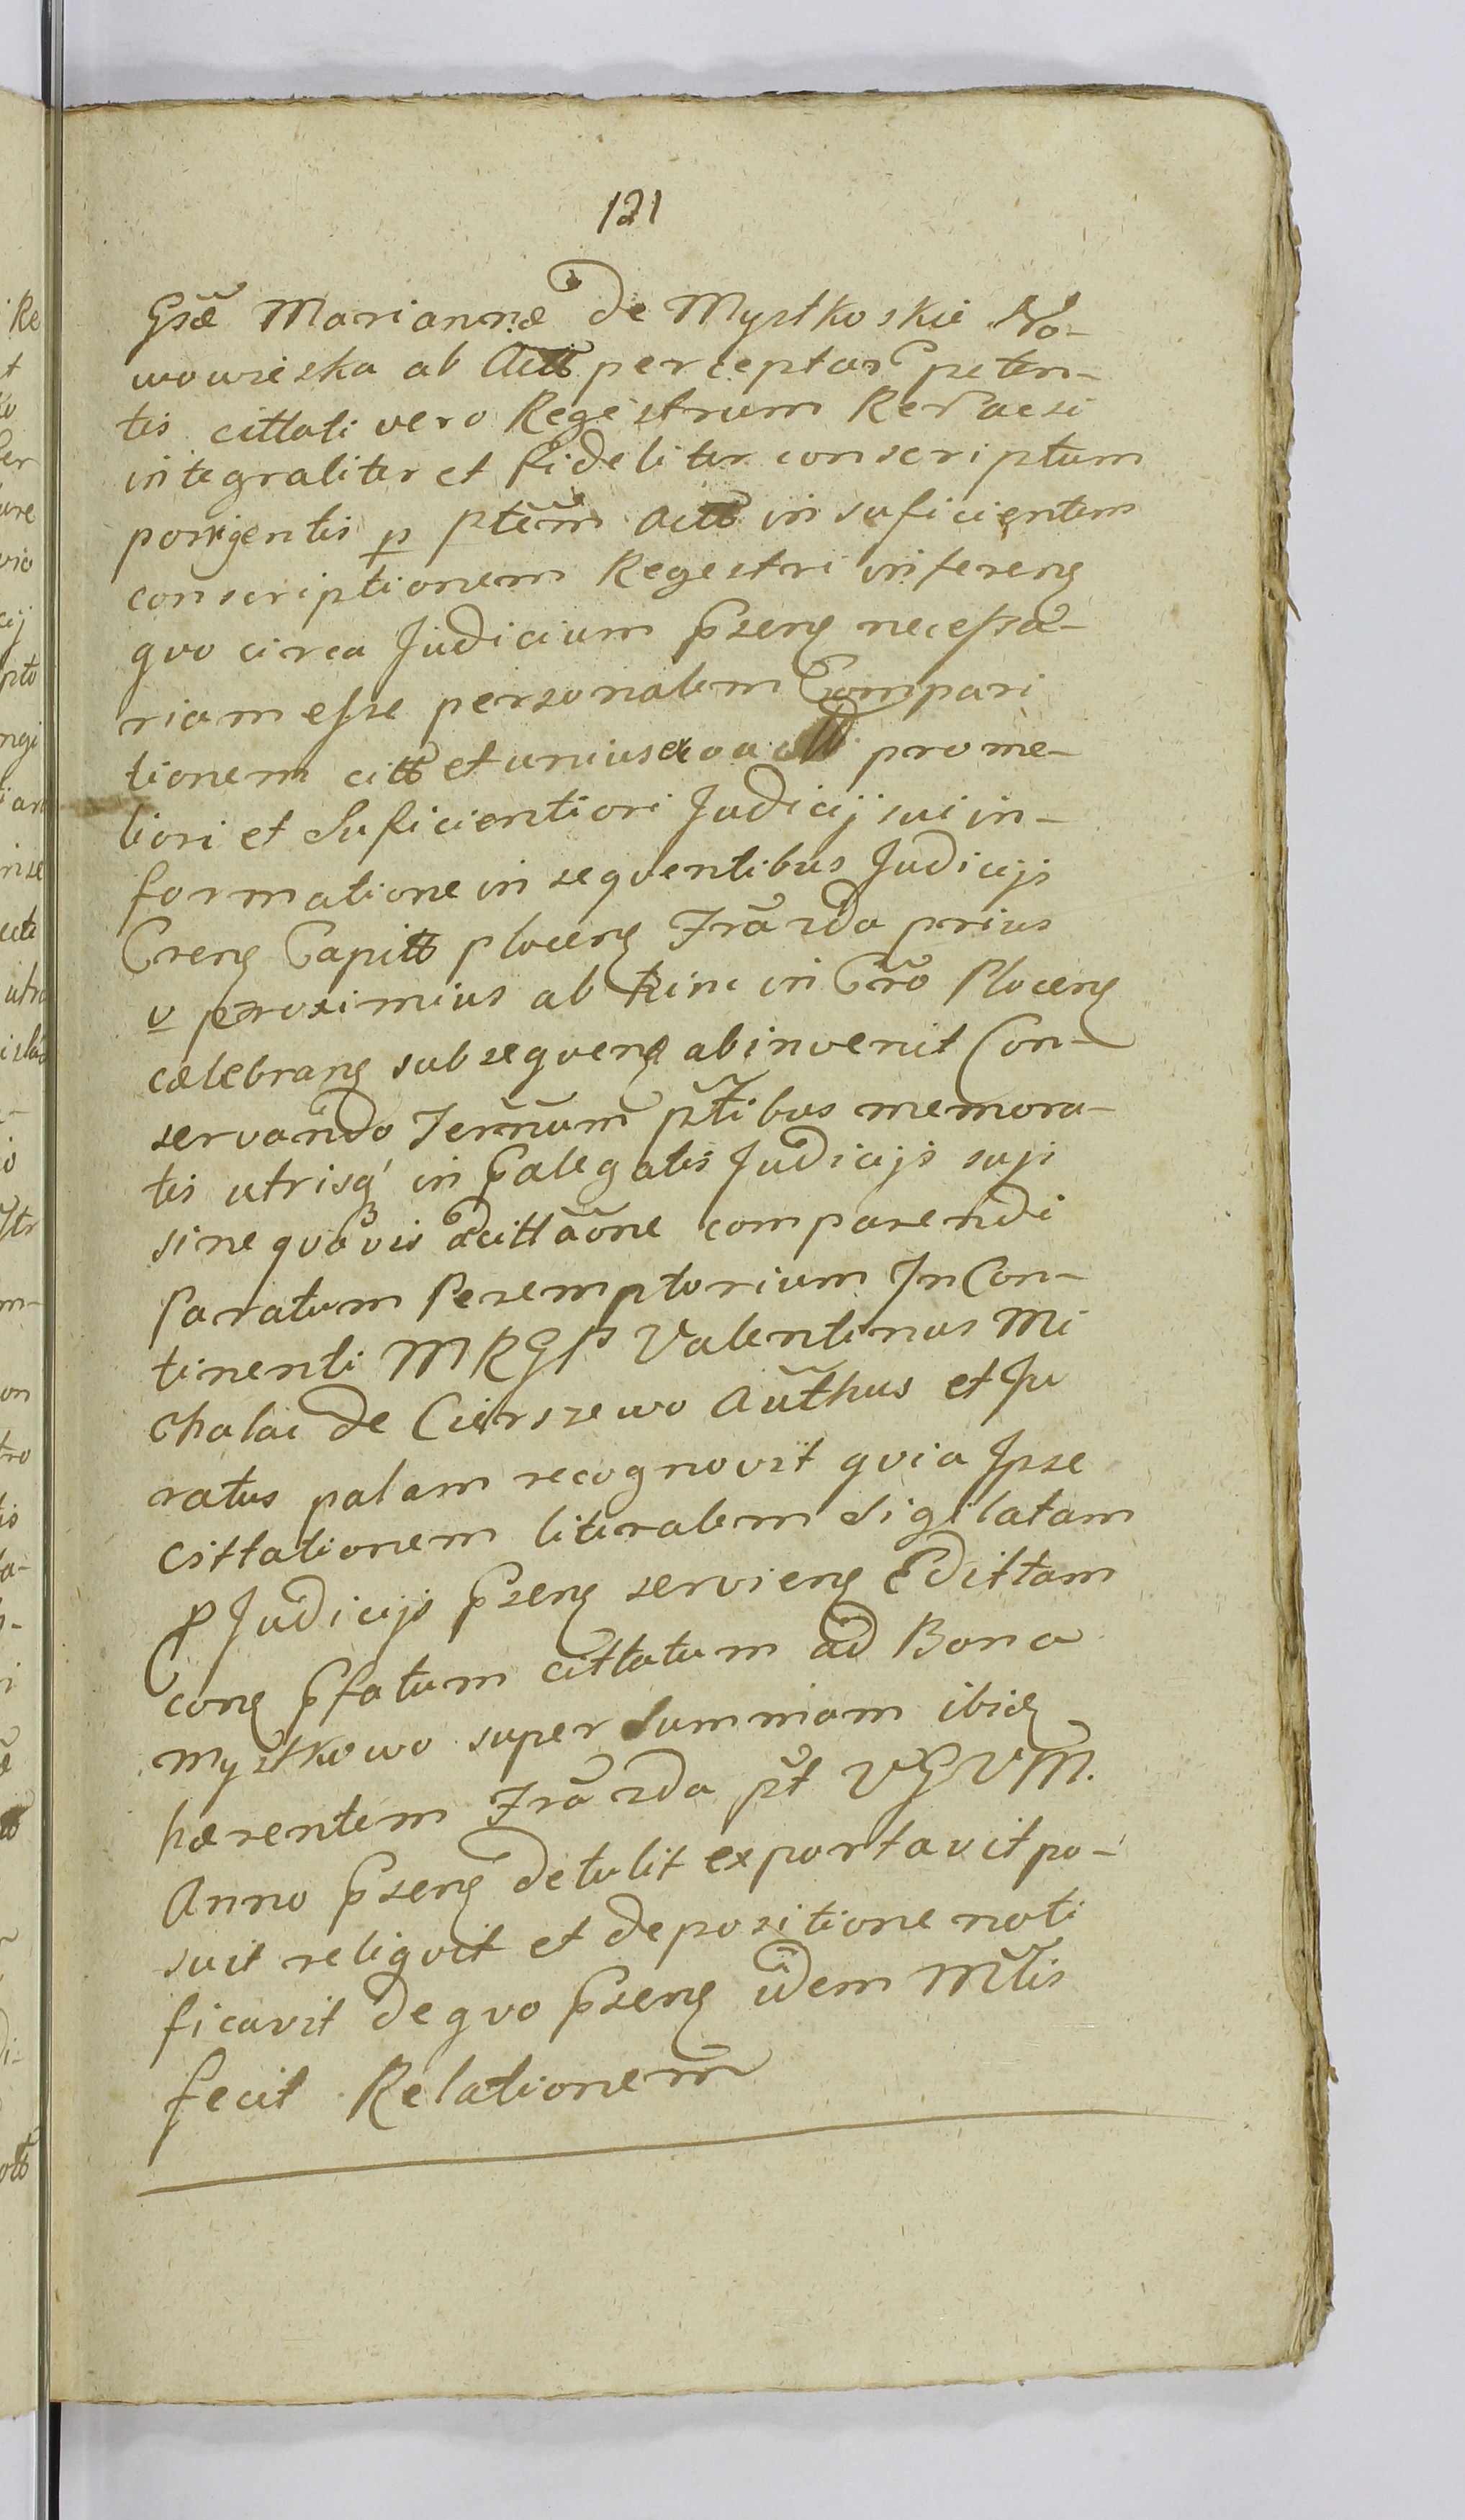 121
Gsæ Mariannæ de Mystkoskie No-
wowieska ab Actt perceptas peten-
tis cittati vero Regestrum
integraliter et fideliter conscriptum
porrigentis p ptem Actt insuficientem
conscriptionem Regestri inferens
quo circa Judicium Psens necessa-
riam esse personalem Compari
tionem citt et unius pro me-
liori et Suficientiori Judicij sui in-
formatione in sequentibus Judicijs
Crens Capitt plocens Frã 2da prius
v proximius ab hinc in Cro Plocens
celebrans subsequens abinvenit Con-
servando Termum ptibus memora-
tis utrisq in Palegatis Judicijs suji
sine quavis adcittaone comparendi
Paratum Peremptorium In Con-
tinenti MRGP Valentinus Mi
chalac de Cierszewo Authus et Ju
ratus palam recognovit quia Ipse
Cittationem literalem Sigilatam
P Judicijs Psens serviens Edittam
cons Pfatum cittatum ad Bona
Mystkowo super Summam ibid
hærentem Frã 2da pt VGVM.
Anno Psens detulit exportavit po-
suit reliquit et depositione noti
ficavit de quo Psens idem Mtlis
fecit Relationem